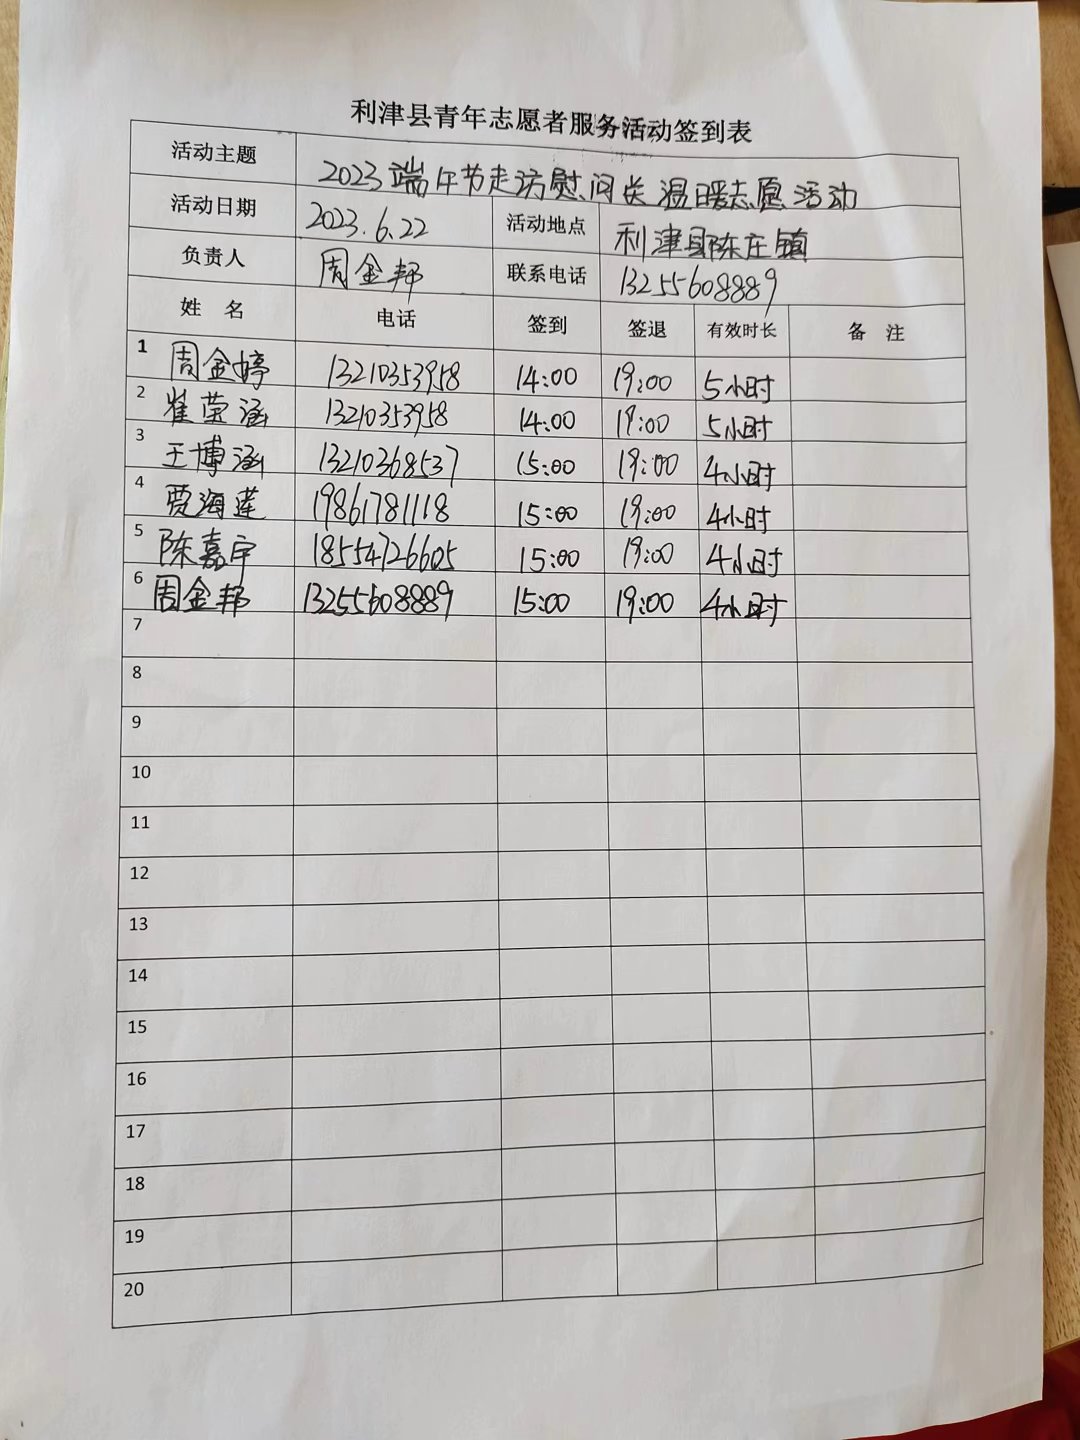 利津县青年志愿者服务活动签到表
活动主题 2023端午节走访慰问送温暖志愿活动
活动日期 2023.6.22 活动地点 利津县陈庄镇
负责人 周金邦 联系电话 13255608889
姓 名 电话 签到 签退 有效时长 备 注
1 周金婷 13210353958 14:00 19:00 5小时
2 崔莹涵 13210353958 14:00 19:00 5小时
3 王博涵 13210368537 15:00 19:00 4小时
4 贾海莲 19861781118 15:00 19:00 4小时
5 陈嘉宇 18554726605 15:00 19:00 4小时
6 周金邦 13255608889 15:00 19:00 4小时
7
8
9
10
11
12
13
14
15
16
17
18
19
20